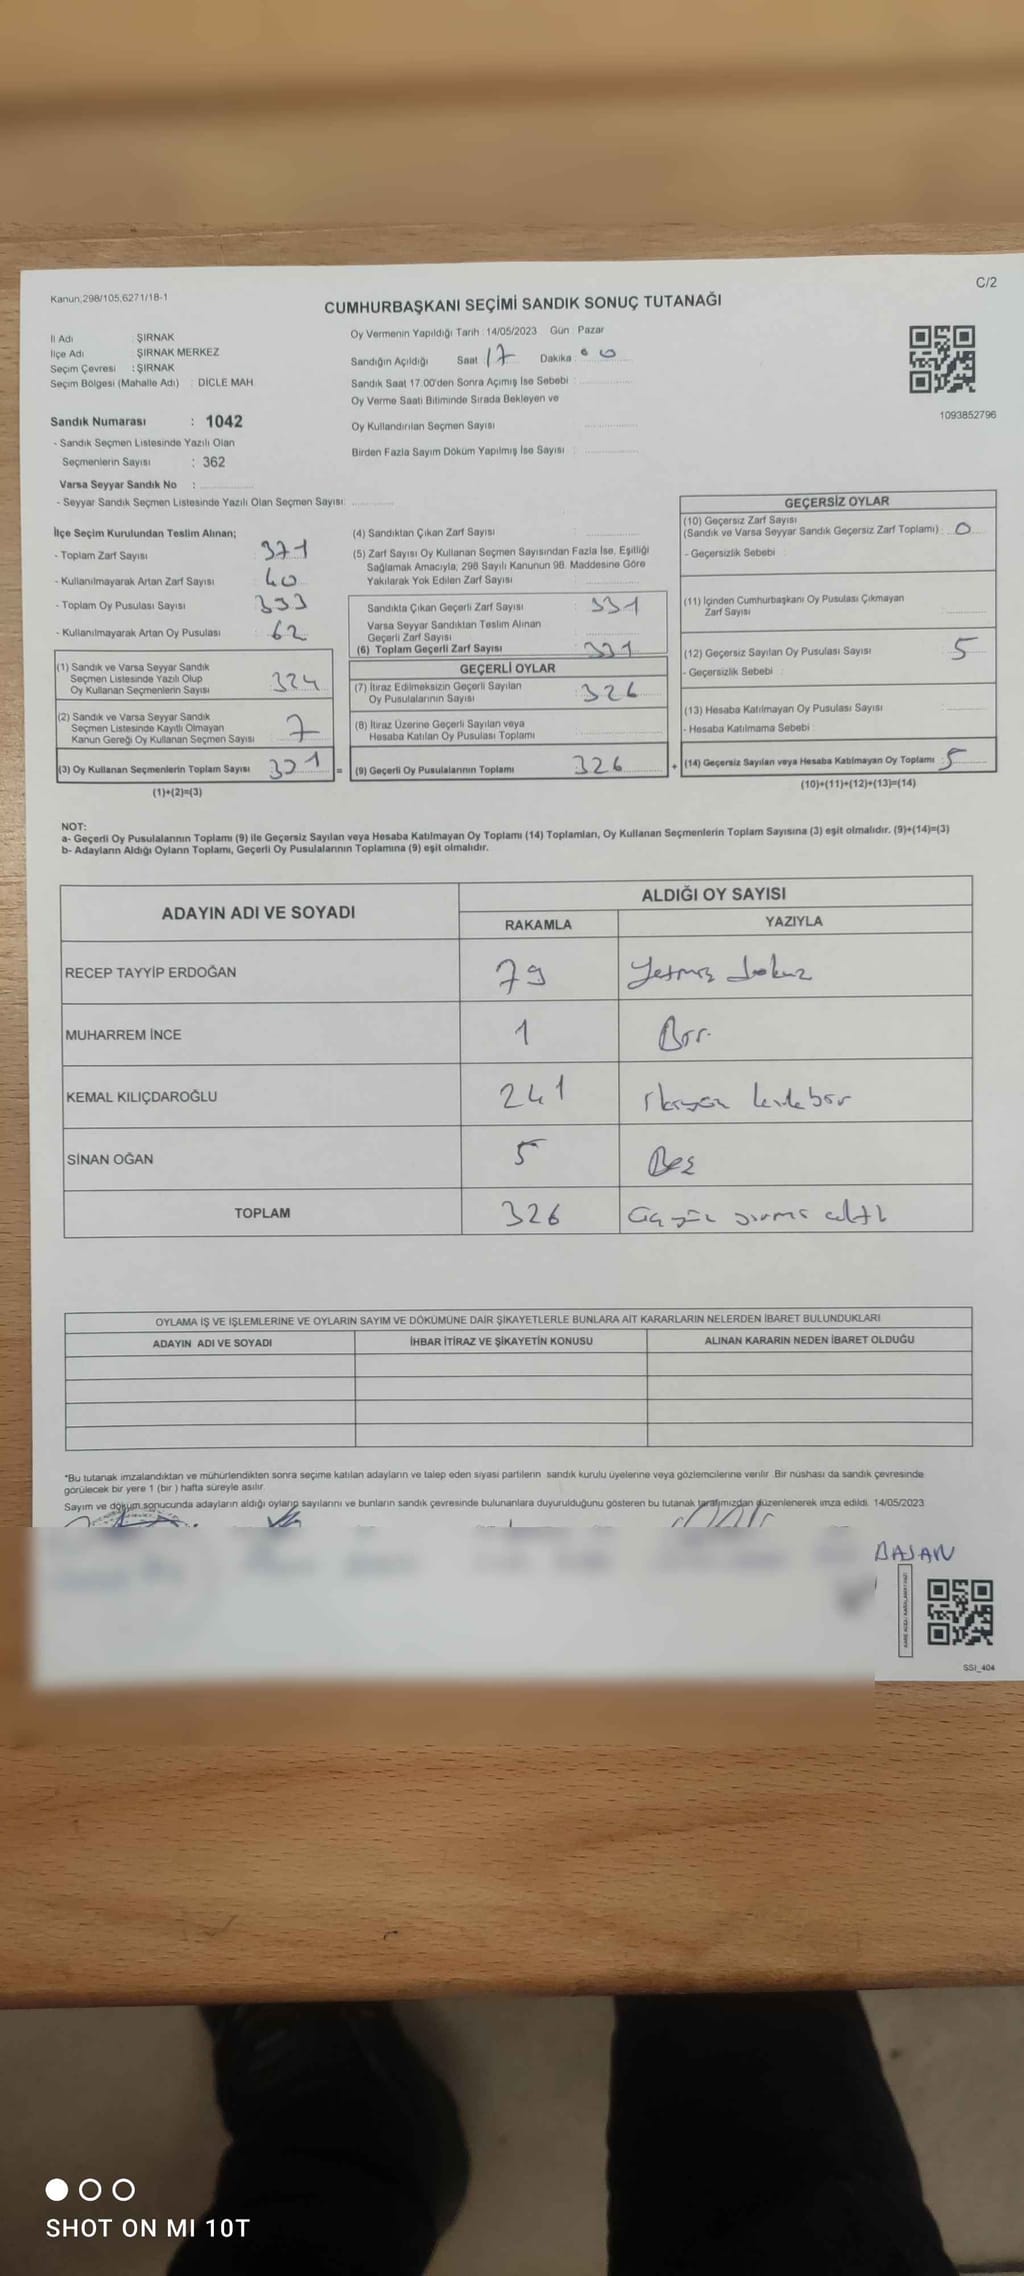 C/2
Kanun,298/105,6271/18-1
CUMHURBAŞKANI SEÇİMİ SANDIK SONUÇ TUTANAĞI
İl Adı : ŞIRNAK
İlçe Adı : ŞIRNAK MERKEZ
Seçim Çevresi : ŞIRNAK
Seçim Bölgesi (Mahalle Adı) : DİCLE MAH.
Sandık Numarası : 1042
- Sandık Seçmen Listesinde Yazılı Olan
Seçmenlerin Sayısı : 362
Varsa Seyyar Sandık No :
- Seyyar Sandık Seçmen Listesinde Yazılı Olan Seçmen Sayısı:
Oy Vermenin Yapıldığı Tarih : 14/05/2023 Gün : Pazar
Sandığın Açıldığı Saat 17 Dakika 00
Sandık Saat 17.00'den Sonra Açımış İse Sebebi :
Oy Verme Saati Bitiminde Sırada Bekleyen ve
Oy Kullandırılan Seçmen Sayısı
Birden Fazla Sayım Döküm Yapılmış İse Sayısı :
1093852796
İlçe Seçim Kurulundan Teslim Alınan;
- Toplam Zarf Sayısı 371
- Kullanılmayarak Artan Zarf Sayısı 40
- Toplam Oy Pusulası Sayısı 393
- Kullanılmayarak Artan Oy Pusulası : 62
(1) Sandık ve Varsa Seyyar Sandık
Seçmen Listesinde Yazılı Olup
Oy Kullanan Seçmenlerin Sayısı 324
(2) Sandık ve Varsa Seyyar Sandık
Seçmen Listesinde Kayıtlı Olmayan
Kanun Gereği Oy Kullanan Seçmen Sayısı 7
(3) Oy Kullanan Seçmenlerin Toplam Sayısı 331 =
(1)+(2)=(3)
(4) Sandıktan Çıkan Zarf Sayısı :
(5) Zarf Sayısı Oy Kullanan Seçmen Sayısından Fazla İse, Eşitliği
Sağlamak Amacıyla; 298 Sayılı Kanunun 98. Maddesine Göre
Yakılarak Yok Edilen Zarf Sayısı :
Sandıkta Çıkan Geçerli Zarf Sayısı : 331
Varsa Seyyar Sandıktan Teslim Alınan
Geçerli Zarf Sayısı
(6) Toplam Geçerli Zarf Sayısı : 331
GEÇERLİ OYLAR
(7) İtiraz Edilmeksizin Geçerli Sayılan
Oy Pusulalarının Sayısı : 326
(8) İtiraz Üzerine Geçerli Sayılan veya
Hesaba Katılan Oy Pusulası Toplamı :
(9) Geçerli Oy Pusulalarının Toplamı 326 +
GEÇERSİZ OYLAR
(10) Geçersiz Zarf Sayısı
(Sandık ve Varsa Seyyar Sandık Geçersiz Zarf Toplamı) : 0
- Geçersizlik Sebebi
(11) İçinden Cumhurbaşkanı Oy Pusulası Çıkmayan
Zarf Sayısı
(12) Geçersiz Sayılan Oy Pusulası Sayısı 5
- Geçersizlik Sebebi :
(13) Hesaba Katılmayan Oy Pusulası Sayısı
- Hesaba Katılmama Sebebi :
(14) Geçersiz Sayılan veya Hesaba Katılmayan Oy Toplamı : 5
(10)+(11)+(12)+(13)=(14)
NOT:
a- Geçerli Oy Pusulalarının Toplamı (9) ile Geçersiz Sayılan veya Hesaba Katılmayan Oy Toplamı (14) Toplamları, Oy Kullanan Seçmenlerin Toplam Sayısına (3) eşit olmalıdır. (9)+(14)=(3)
b- Adayların Aldığı Oyların Toplamı, Geçerli Oy Pusulalarının Toplamına (9) eşit olmalıdır.
ADAYIN ADI VE SOYADI ALDIĞI OY SAYISI
RAKAMLA YAZIYLA
RECEP TAYYİP ERDOĞAN 79 Yetmiş dokuz
MUHARREM İNCE 1 Bir
KEMAL KILIÇDAROĞLU 241
SİNAN OĞAN 5 Beş
TOPLAM 326 Üç yüz yirmi altı
OYLAMA İŞ VE İŞLEMLERİNE VE OYLARIN SAYIM VE DÖKÜMÜNE DAİR ŞİKAYETLERLE BUNLARA AİT KARARLARIN NELERDEN İBARET BULUNDUKLARI
ADAYIN ADI VE SOYADI İHBAR İTİRAZ VE ŞİKAYETİN KONUSU ALINAN KARARIN NEDEN İBARET OLDUĞU
*Bu tutanak imzalandıktan ve mühürlendikten sonra seçime katılan adayların ve talep eden siyasi partilerin sandık kurulu üyelerine veya gözlemcilerine verilir. Bir nüshası da sandık çevresinde
görülecek bir yere 1 (bir) hafta süreyle asılır.
Sayım ve döküm sonucunda adayların aldığı oyların sayılarını ve bunların sandık çevresinde bulunanlara duyurulduğunu gösteren bu tutanak tarafımızdan düzenlenerek imza edildi. 14/05/2023
BAŞAN
SSI_404
SHOT ON MI 10T